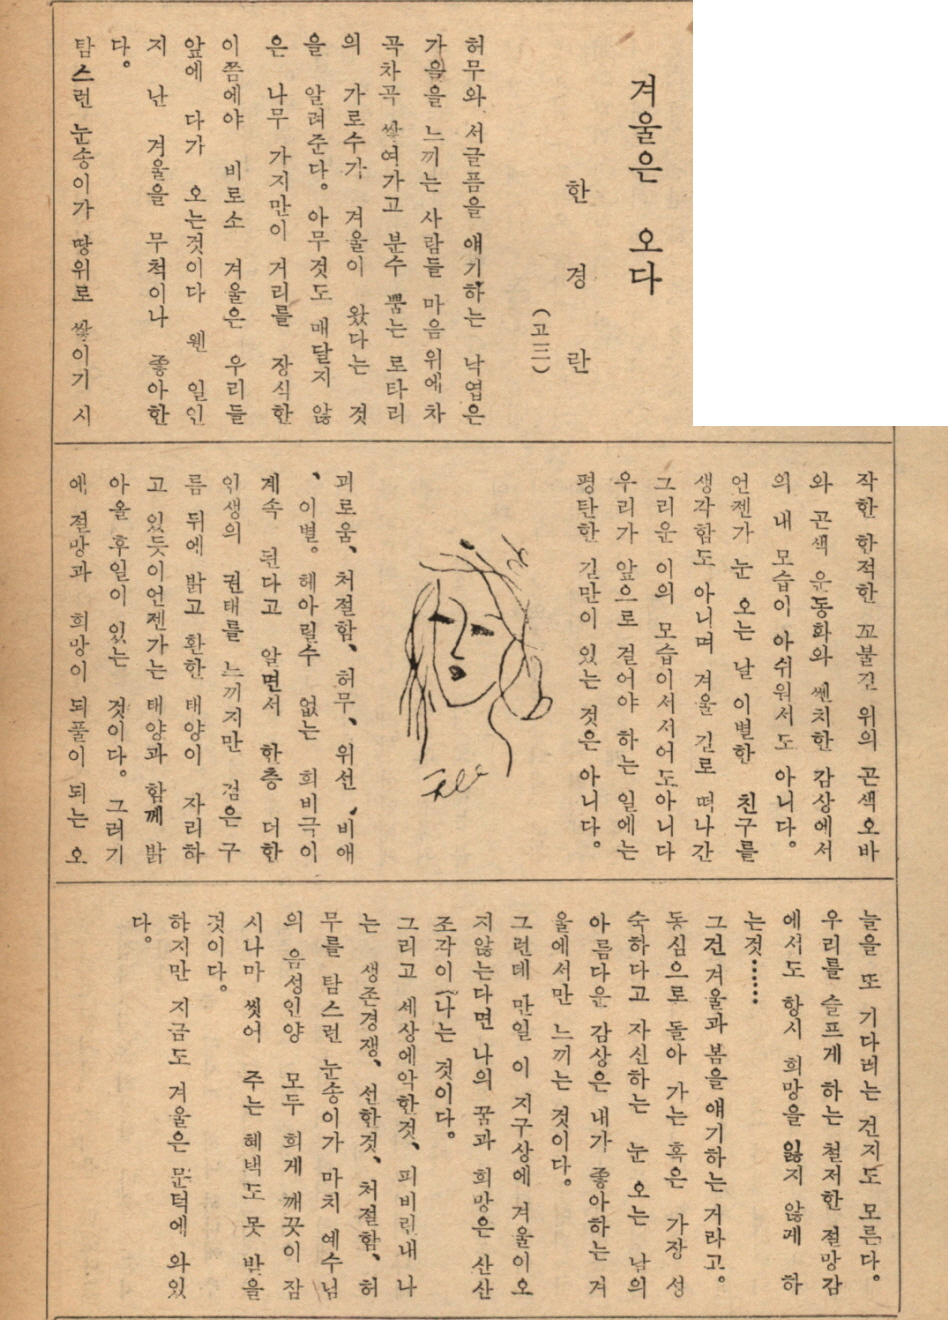 겨울은 오다
한 경 란
(고三)
허무와 서글픔을 얘기하는 낙엽은
가을을 느끼는 사람들 마음 위에 차
곡차곡 쌓여가고 분수 뿜는 로타리
의 가로수가 겨울이 왔다는 것
을 알려준다. 아무것도 매달지 않
은 나무 가지만이 거리를 장식한
이쯤에야 비로소 겨울은 우리들
앞에 다가 오는것이다 웬 일인
지 난 겨울을 무척이나 좋아한
다.
탐스런 눈송이가 땅위로 쌓이기 시
작한 한적한 꼬불길 위의 곤색오바
와 곤색 운동화와 쎈치한 감상에서
의 내 모습이 아쉬워서도 아니다.
언젠가 눈 오는 날 이별한 친구를
생각함도 아니며 겨울 길로 떠나간
그리운 이의 모습이서서어도아니다
우리가 앞으로 걸어야 하는 일에는
평탄한 길만이 있는 것은 아니다.
괴로움、처절함、허무、위선、비애
、이별。헤아릴수 없는 희비극이
계속 된다고 알면서 한층 더한
인생의 권태를 느끼지만 검은 구
름 뒤에 밝고 환한 태양이 자리하
고 있듯이언젠가는 태양과 함께 밝
아올 후일이 있는 것이다. 그러기
에 절망과 희망이 되풀이 되는 오
늘을 또 기다려는 건지도 모른다.
우리를 슬프게 하는 철저한 절망감
에서도 항시 희망을 잃지 않게 하
는것……
그건 겨울과 봄을얘기하는 거라고.
동심으로 돌아 가는 혹은 가장 성
숙하다고 자신하는 눈 오는 날의
아름다운 감상은 내가 좋아하는 겨
울에서만 느끼는 것이다.
그런데 만일 이 지구상에 겨울이오
지않는다면 나의 꿈과 희망은 산산
조각이 나는 것이다.
그리고 세상에악한것、피비린내 나
는 생존경쟁、선한것、처절함、허
무를 탐스런 눈송이가 마치 예수님
의 음성인양 모두 희게 깨끗이 잠
시나마 씻어 주는 혜택도 못 받을
것이다.
하지만 지금도 겨울은 문턱에 와있
다.